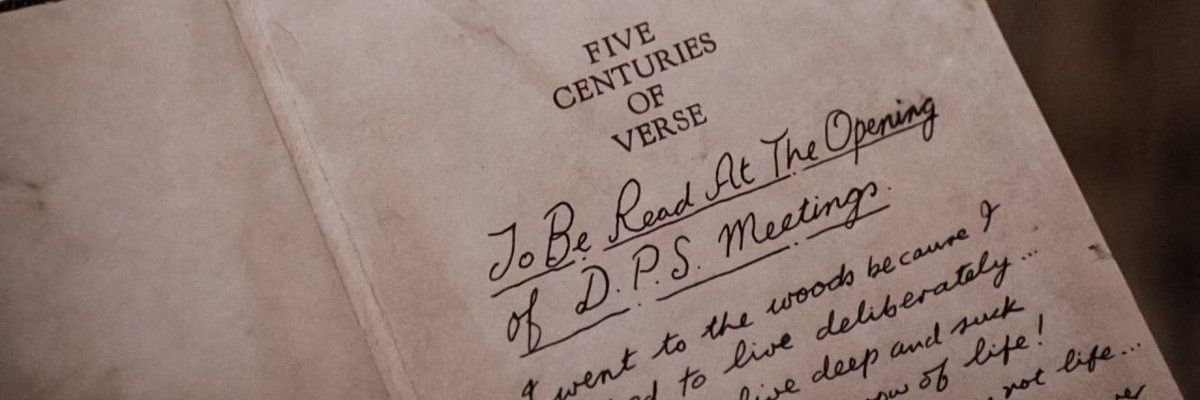 FIVE
CENTURIES
OF
VERSE
To Be Read At The Opening
of D.P.S. Meetings.
I went to the woods because I
to live deliberately...
live deep and suck
of life!
not life...